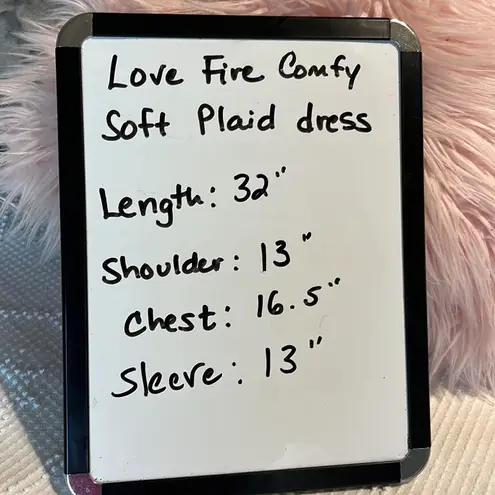 Love Fire Comfy
Soft Plaid dress
Length: 32"
Shoulder: 13"
Chest: 16.5"
Sleeve: 13"